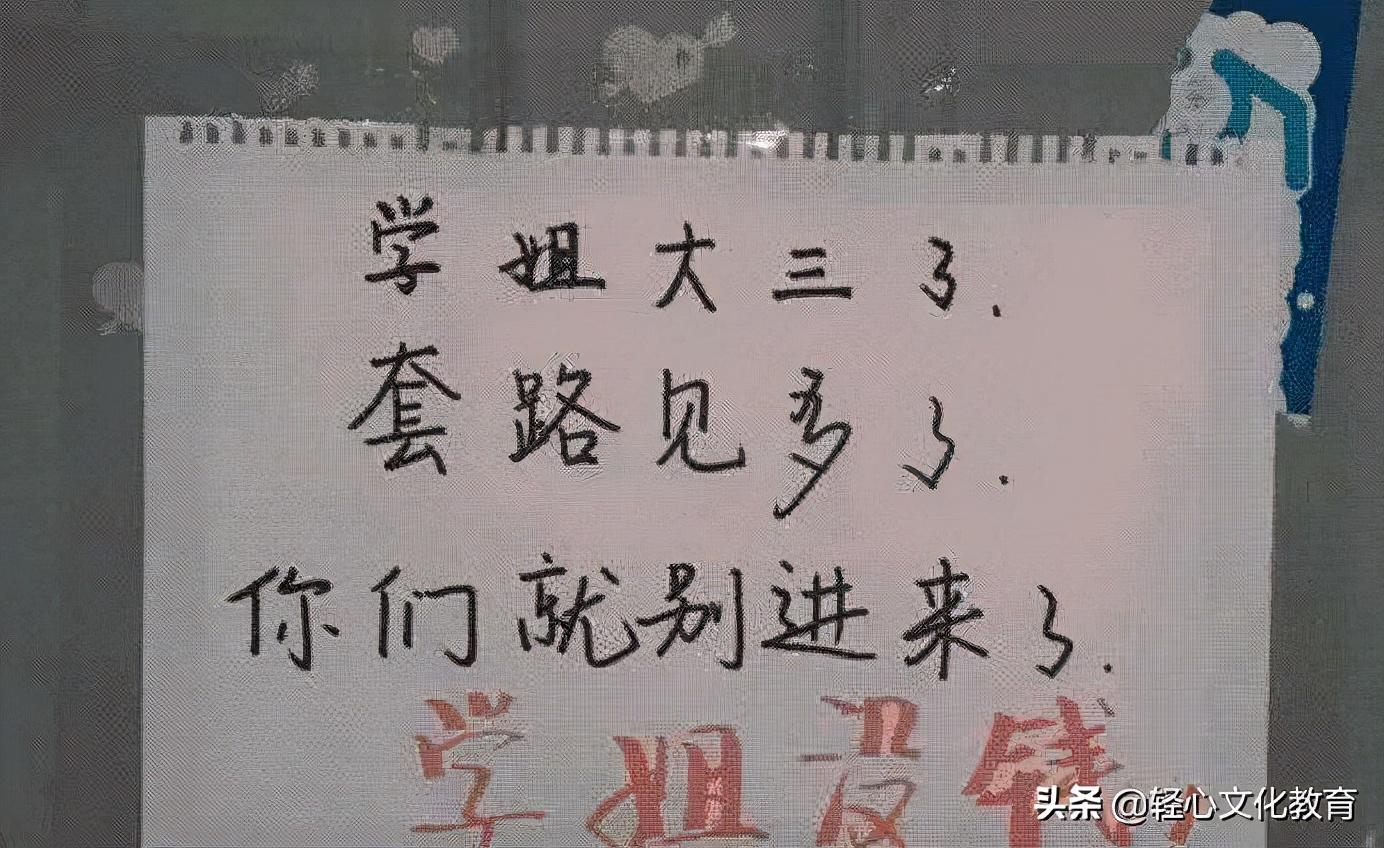 学姐大三了.
套路见多了.
你们就别进来了.
学姐没钱
头条 @轻心文化教育